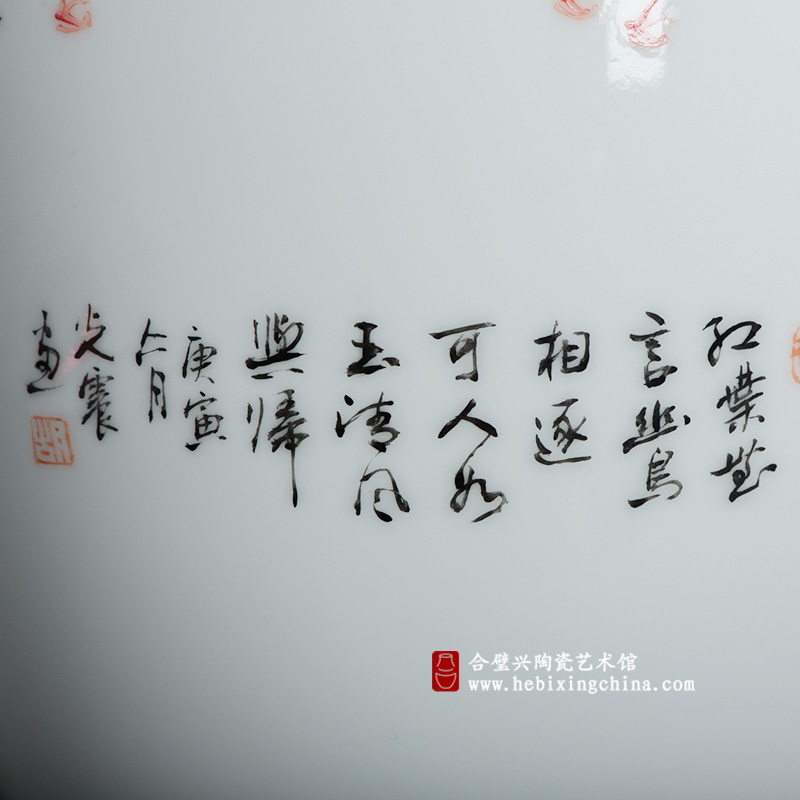 红葉無
言幽鳥
相逐
可人如
玉清风
與歸
庚寅
六月
光震
畫
合璧兴陶瓷艺术馆
www.hebixingchina.com